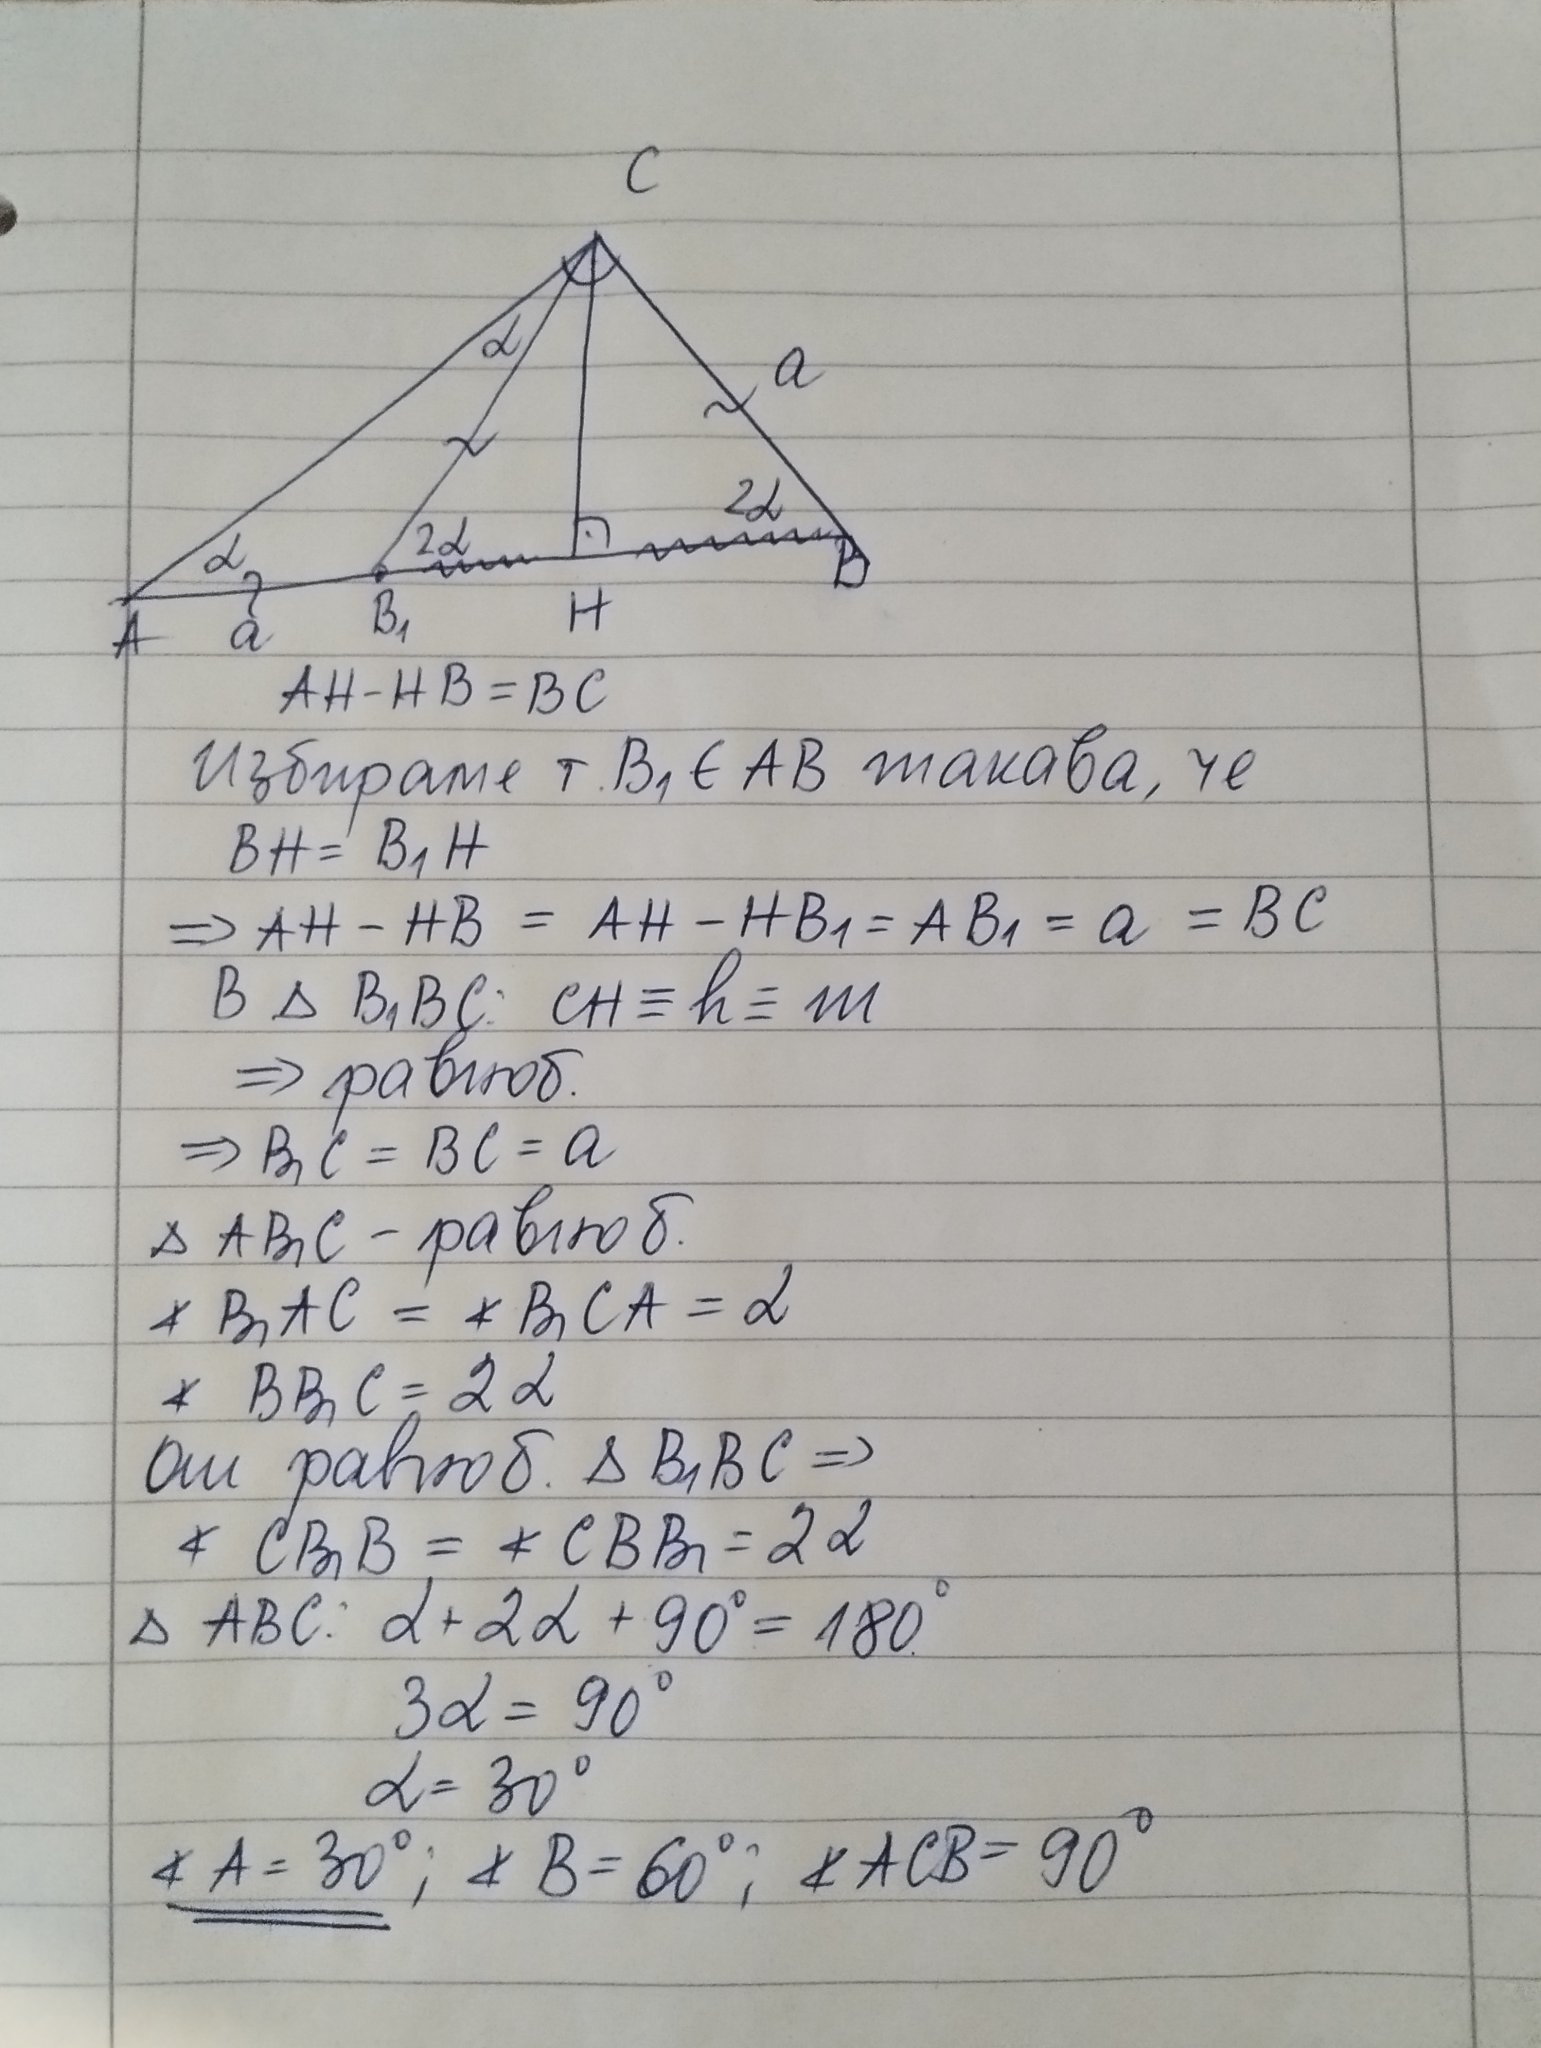 C
α
a
2α
2α
α
A a B₁ H B
AH - HB = BC
Избираме т. B₁ ∈ AB такава, че
BH = B₁H
⇒ AH - HB = AH - HB₁ = AB₁ = a = BC
В Δ B₁BC: CH ≡ h ≡ m
⇒ равноб.
⇒ B₁C = BC = a
Δ AB₁C - равноб.
∢ B₁AC = ∢ B₁CA = α
∢ BB₁C = 2α
От равноб. Δ B₁BC ⇒
∢ CB₁B = ∢ CBB₁ = 2α
Δ ABC: α + 2α + 90° = 180°
3α = 90°
α = 30°
∢ A = 30°; ∢ B = 60°; ∢ ACB = 90°